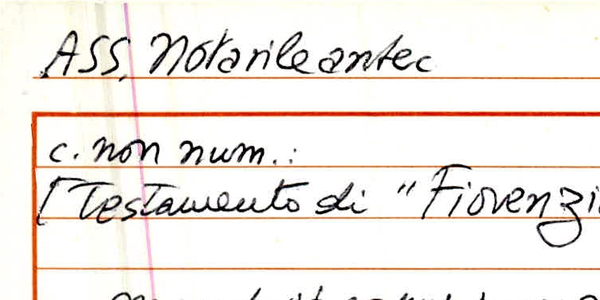 ASS, Notarile antec
c. non num.:
[Testamento di "Fiorenzi